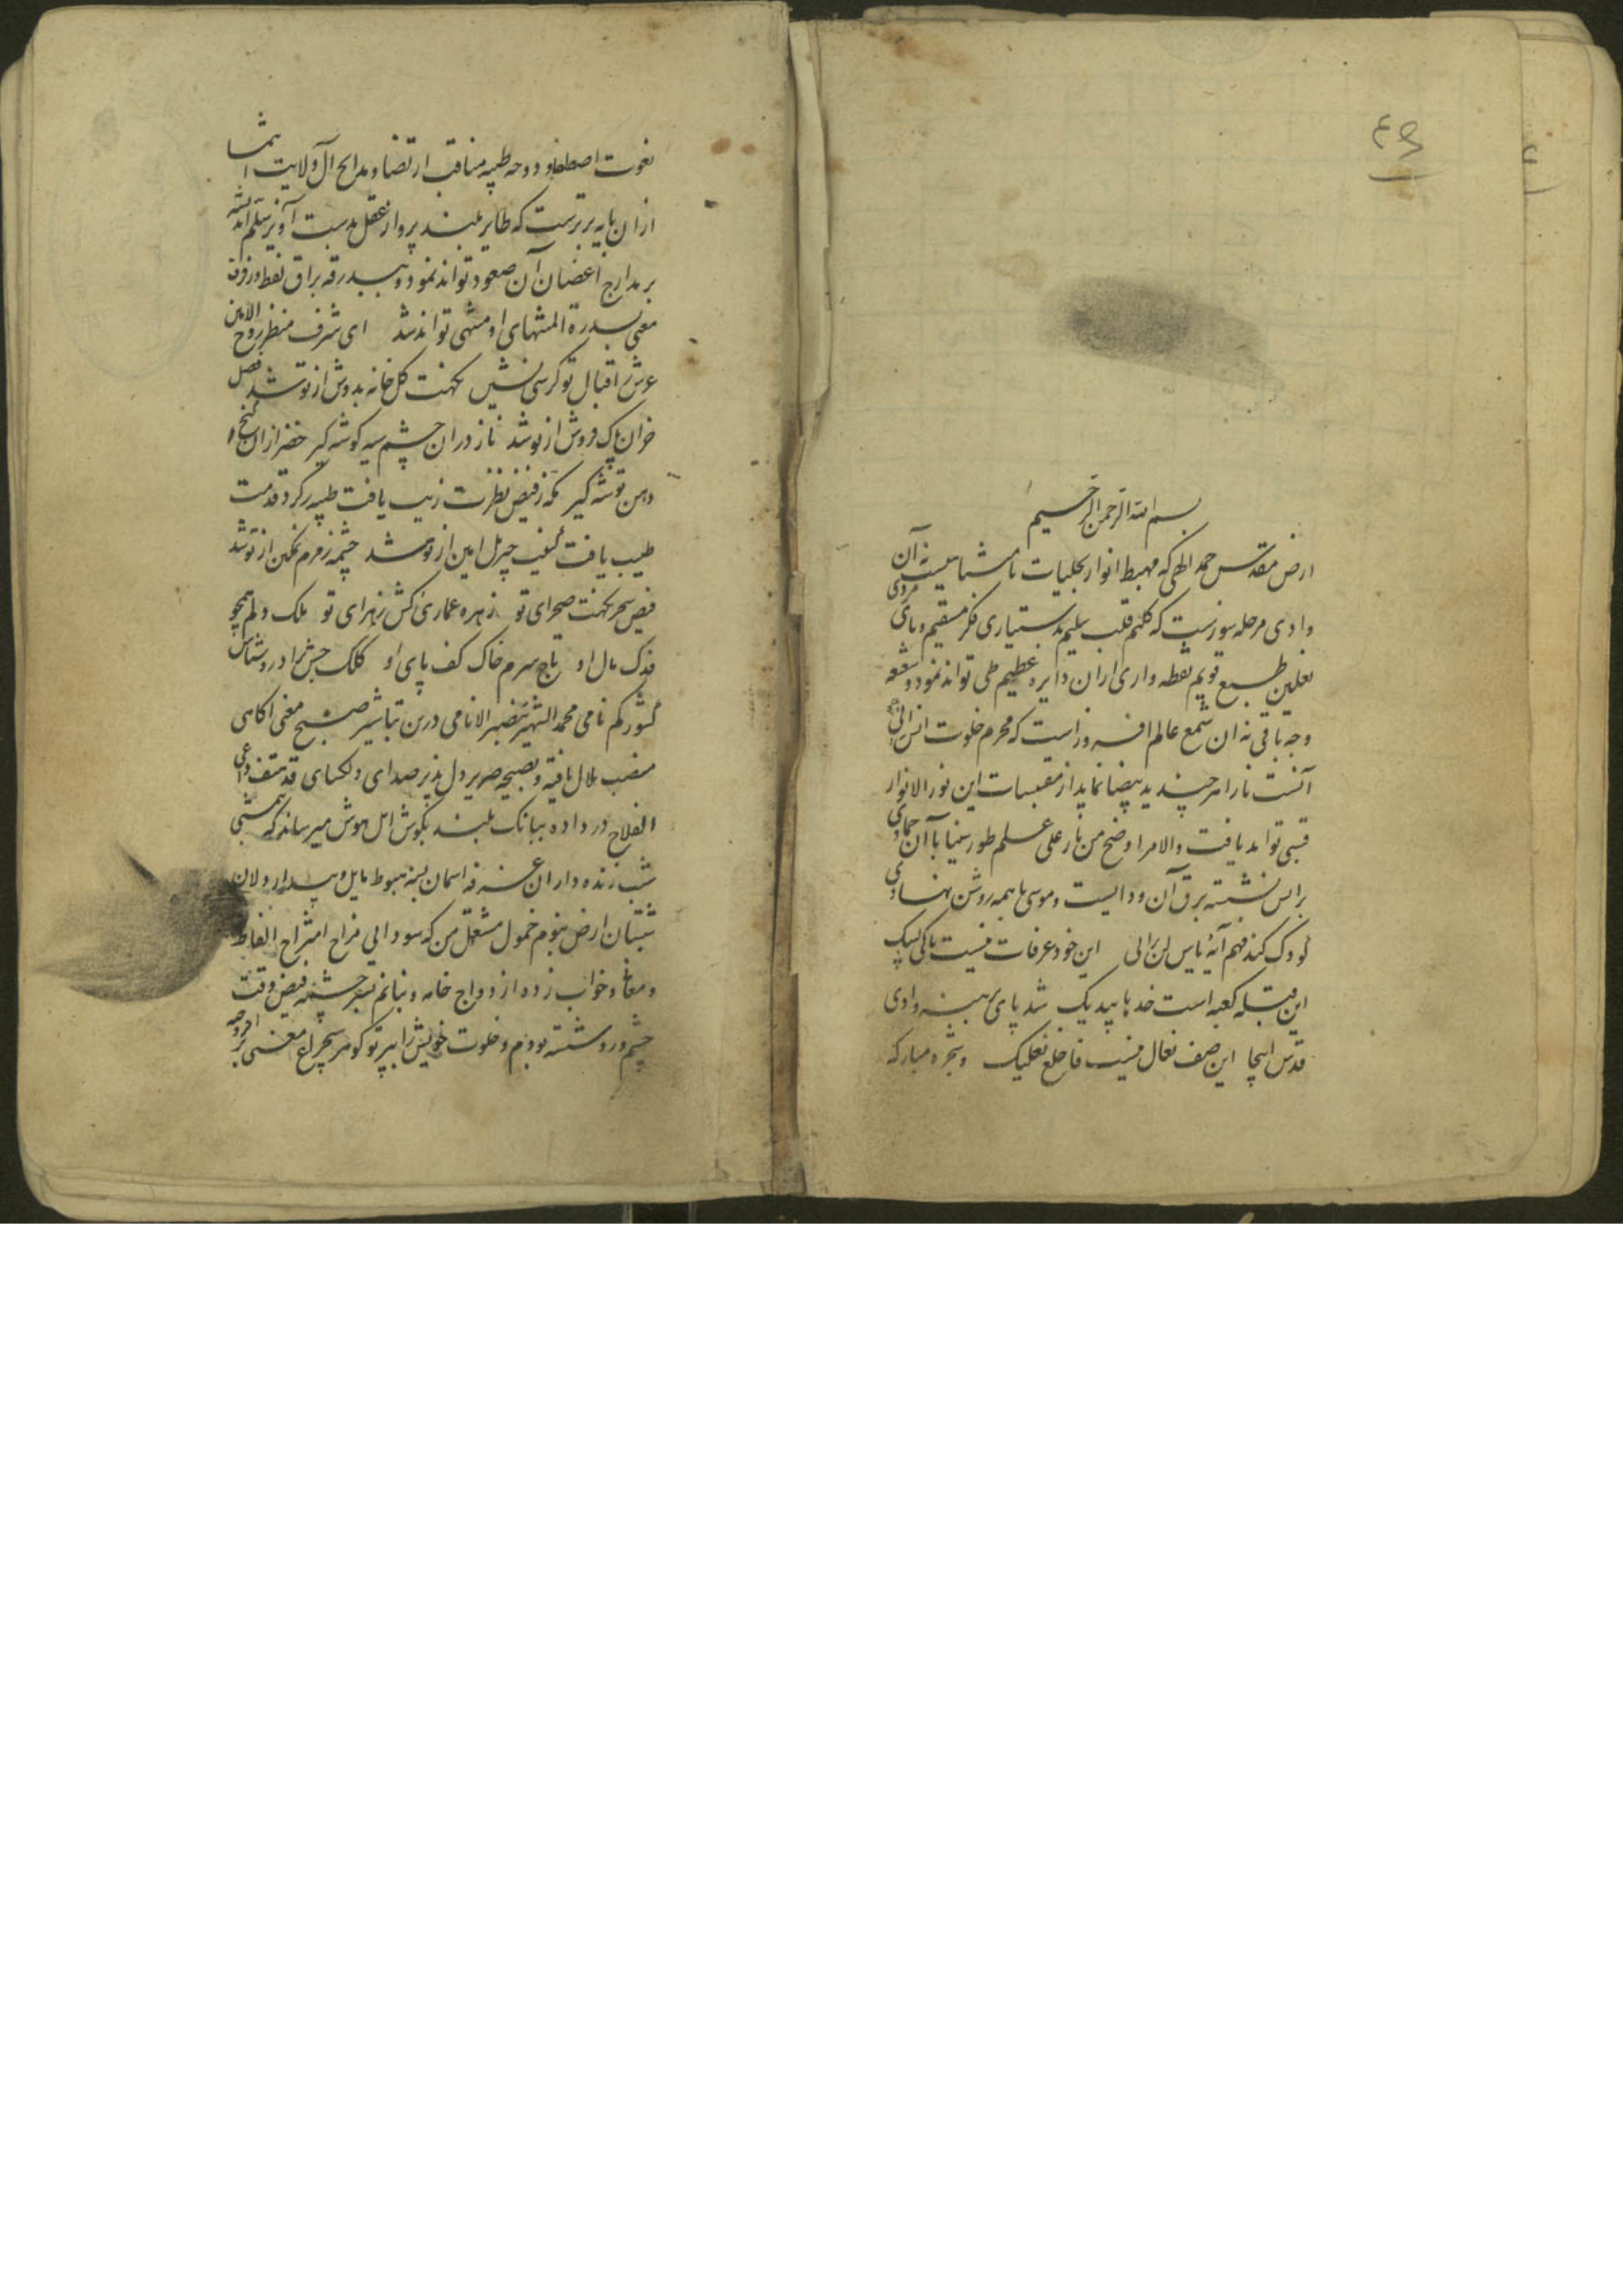 ٤٩
بسم الله الرحمن الرحیم
ارض مقدس حمد الهی که مهبط انوار تجلیات نامتناهیست نه آن
وادی مرحله سوزست که کلیم قلب سلیم بدستیاری فکر مستقیم و پای مردی
نعلین طبع قویم نقطه واری از ان دایره عظیم طی تواند نمود و شعشعه
وجه باقی نه ان شمع عالم افروز است که محرم خلوت انس انی
آنست نارا هر چند ید بیضا نماید از مقتبسات این نور الانوار
قبسی تواند یافت والامر اوضح من نار علی علم طور سینا با آن
برابس نشسته برق آن وادیست و موسی با همه روشن نهادی
کودک کند فهم آیهٔ یاس لن ترانی این خود عرفات نیست باکی لبیک
این قبله کعبه است خد بابیدیک شد پای برهنه وادی
قدس اینجا این صف نعال نیست فاخلع نعلیک و شجره مبارکه
نعوت اصطفا و دوحه طیبه مناقب ارتضا و مدایح آل ولایت انتما
از ان پایه برترست که طایر بلند پرواز عقل بدست آویز سلم اندیشه
بر مدارج اغصان آن صعود تواند نمود و ببدرقه براق لفظ و رفرف
معنی بسدرة المنتهای او منتهی تواند شد ای شرف منظر روح الامین
عرش ز اقبال تو کرسی نشین نکهت گل خانه بدوش از تو شد فصل
خزان برگ فروش از تو شد ناز دران چشم سیه گوشه گیر خضر ازان کنج
دهن توشه گیر مکه ز فیض نظرت زیب یافت طیبه ز گرد قدمت
طیب یافت کیف جبریل امین از تو شد چشمه زمزم نمکین از تو شد
فیض سحر نکهت صحرای تو زهره عماری کش زهرای تو ملک دلم همچو
فدک مال او تاج سرم خاک کف پای او کلک حبش زاد روشناس
کشور گم نامی محمد الشهیر بنصیر الانامی درین تباشیر صبح معنی اکاهی
منصب بلال یافته و بصیحه صریر دل پذیر صدای دلکشای قد هتف داعی
الفلاح در داده ببانک بلند بگوش اهل هوش میرساند که همشی
شب زنده داران غرفه اسمان بنه هبوط مایل و بیدار دلان
شبستان ارض بنوم خمول مشتغل من که سودایی مزاج امتزاج الفاظ
و معانی و خواب زده ازدواج خامه و بنانم بسرچشمه فیض وقت
چشم و رو شسته بودم و خلوت خویش را بپرتو گوهر سچراغ معنی بر افروخته